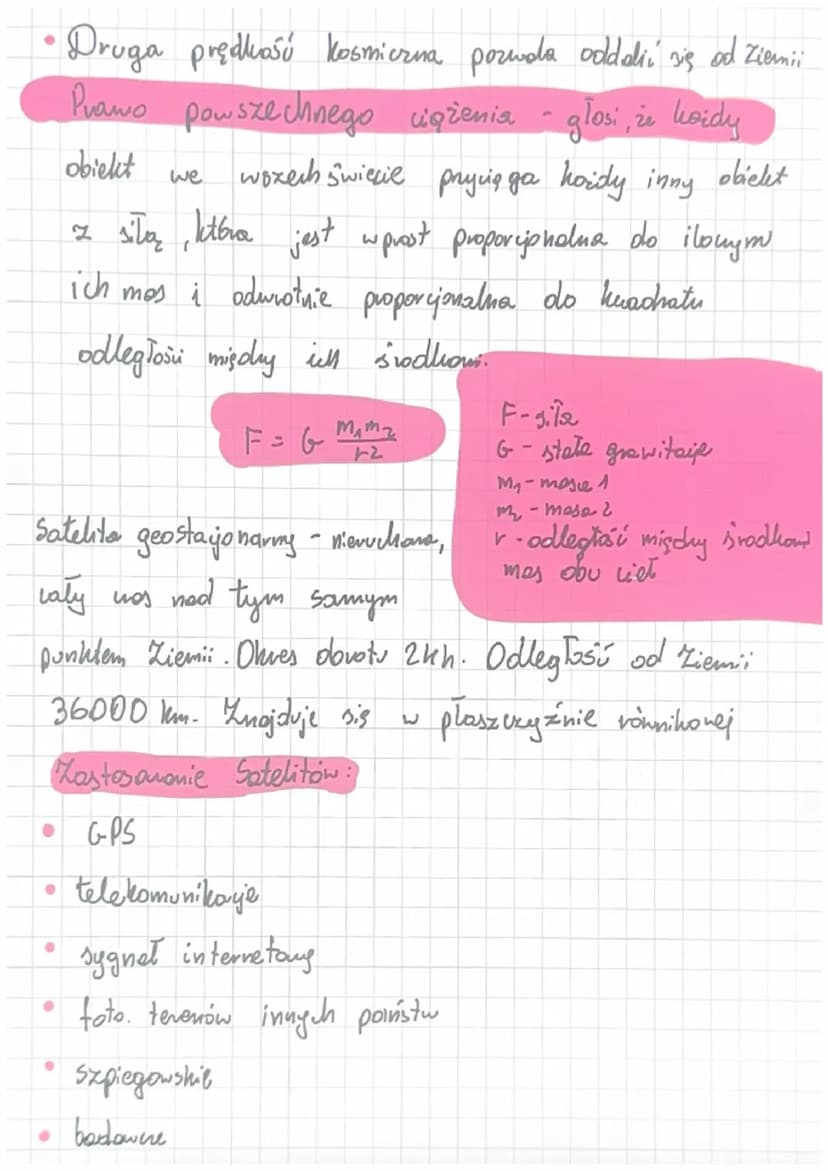 • Druga prędkość kosmiczna pozwala oddalić się od Ziemii
Prawo powszechnego ciążenia - głosi, że każdy
obiekt we wszechświecie przyciąga każdy inny obiekt
z siłą, która jest wprost proporcjonalna do iloczynu
ich mas i odwrotnie proporcjonalna do kwadratu
odległości między ich środkami.
F = G \frac{m_1 m_2}{r2}
F - siła
G - stała grawitacje
m₁ - masa 1
m₂ - masa 2
r - odległość między środkami
mas obu ciał
Satelita geostacjonarny - nieruchoma,
cały czas nad tym samym
punktem Ziemii. Okres obrotu 24h. Odległość od Ziemii
36000 km. Znajduje się w płaszczyźnie równikowej
Zastosowanie Satelitów:
• GPS
• telekomunikacje
• sygnał internetowy
• foto. terenów innych państw
• szpiegowskie
• badawcze